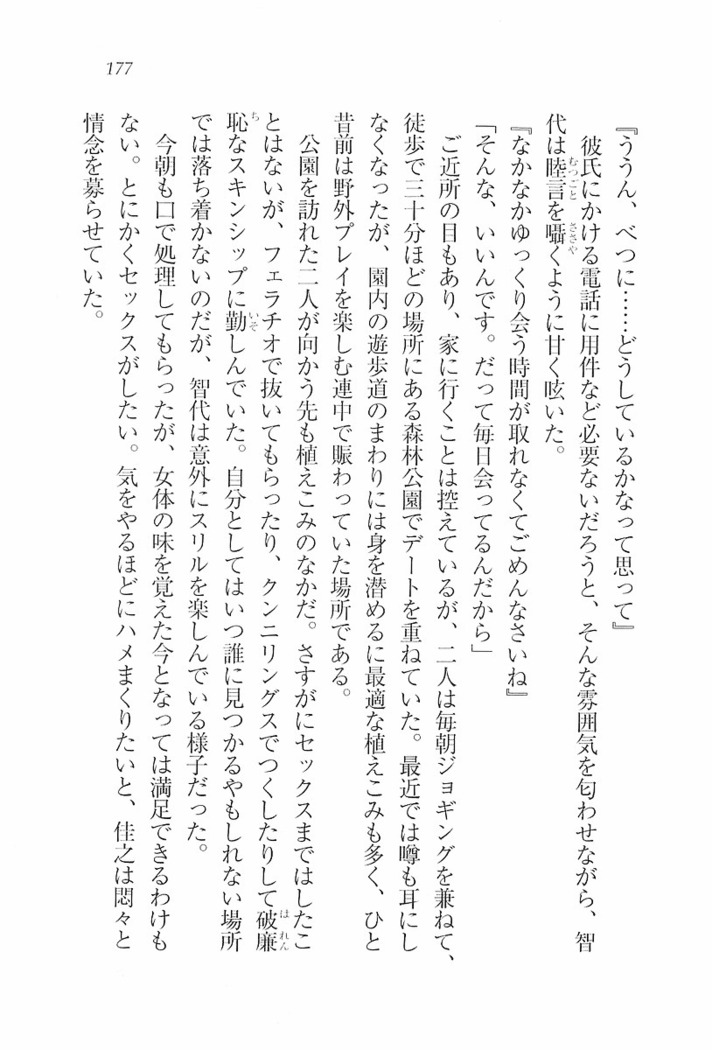 177
『ううん、べつに……どうしているかなって思って』
彼氏にかける電話に用件など必要ないだろうと、そんな雰囲気を匂わせながら、智
代は睦言を囁くように甘く呟いた。
『なかなかゆっくり会う時間が取れなくてごめんなさいね』
「そんな、いいんです。だって毎日会ってるんだから」
ご近所の目もあり、家に行くことは控えているが、二人は毎朝ジョギングを兼ねて、
徒歩で三十分ほどの場所にある森林公園でデートを重ねていた。最近では噂も耳にし
なくなったが、園内の遊歩道のまわりには身を潜めるに最適な植えこみも多く、ひと
昔前は野外プレイを楽しむ連中で賑わっていた場所である。
公園を訪れた二人が向かう先も植えこみのなかだ。さすがにセックスまではしたこ
とはないが、フェラチオで抜いてもらったり、クンニリングスでつくしたりして破廉
恥なスキンシップに勤しんでいた。自分としてはいつ誰に見つかるやもしれない場所
では落ち着かないのだが、智代は意外にスリルを楽しんでいる様子だった。
今朝も口で処理してもらったが、女体の味を覚えた今となっては満足できるわけも
ない。とにかくセックスがしたい。気をやるほどにハメまくりたいと、佳之は悶々と
情念を募らせていた。